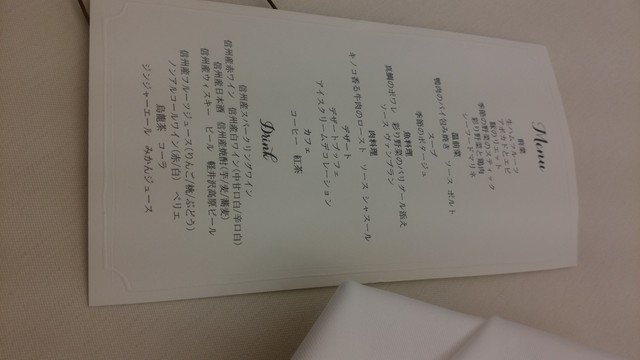 Menu
前菜
生ハムフルーツ
アボカドとエビ
豚のリエット
季節の野菜のスティック
彩り野菜と鶏肉
シーフードマリネ
温前菜
鴨肉のパイ包み焼き ソース ポルト
スープ
季節のポタージュ
魚料理
真鯛のポワレ 彩り野菜のバリグール添え
ソース ヴァンブラン
肉料理
キノコ香る牛肉のロースト ソース シャスール
デザート
デザートブッフェ
アイスクリームデコレーション
カフェ
コーヒー 紅茶
Drink
信州産スパークリングワイン
信州産赤ワイン 信州産白ワイン(中甘口白/辛口白)
信州産日本酒 信州産焼酎(芋/麦/蕎麦)
信州産ウィスキー ビール 軽井沢高原ビール
信州産フルーツジュース(りんご/桃/ぶどう)
ノンアルコールワイン(赤/白) ペリエ
烏龍茶 コーラ
ジンジャーエール みかんジュース